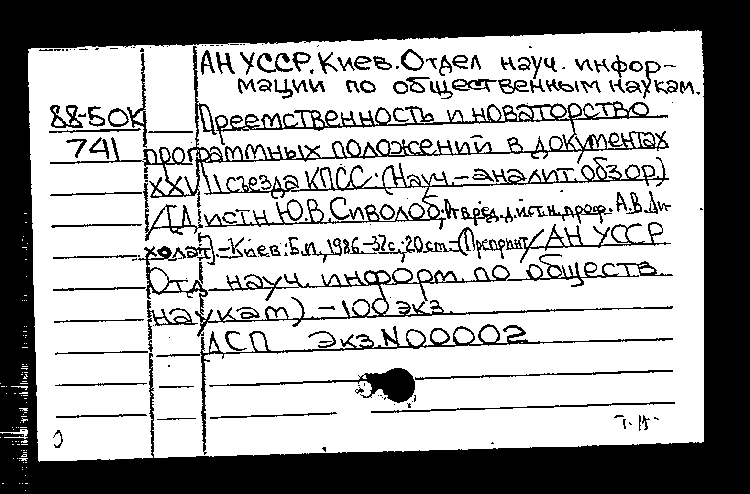 АН УССР. Киев. Отдел науч. инфор-
мации по общественным наукам.
88-5 ОК
741
Преемственность и новаторство
программных положений в документах
XXVII съезда КПСС: (Науч.-аналит. обзор)
/Д.д. истн Ю.В. Сиволоб; Отв ред. д. ист. н, проф. А.В. Ли-
холат]. - Киев: Б.и, 1986. - 32 с.; 20 cm - (Препринт / АН УССР
Отд. науч. информ. по обществ.
наукам). - 100 экз.
ДСП Экз. N 00002